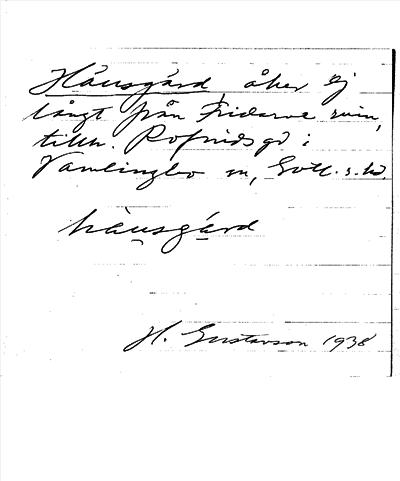 Häusgård, åker ej
långt från Fridarve ruin,
tillh. Rofinds gd i
Vamlingbo sn, Gotl. s. hd.
häusgárd
H. Gustavson 1938